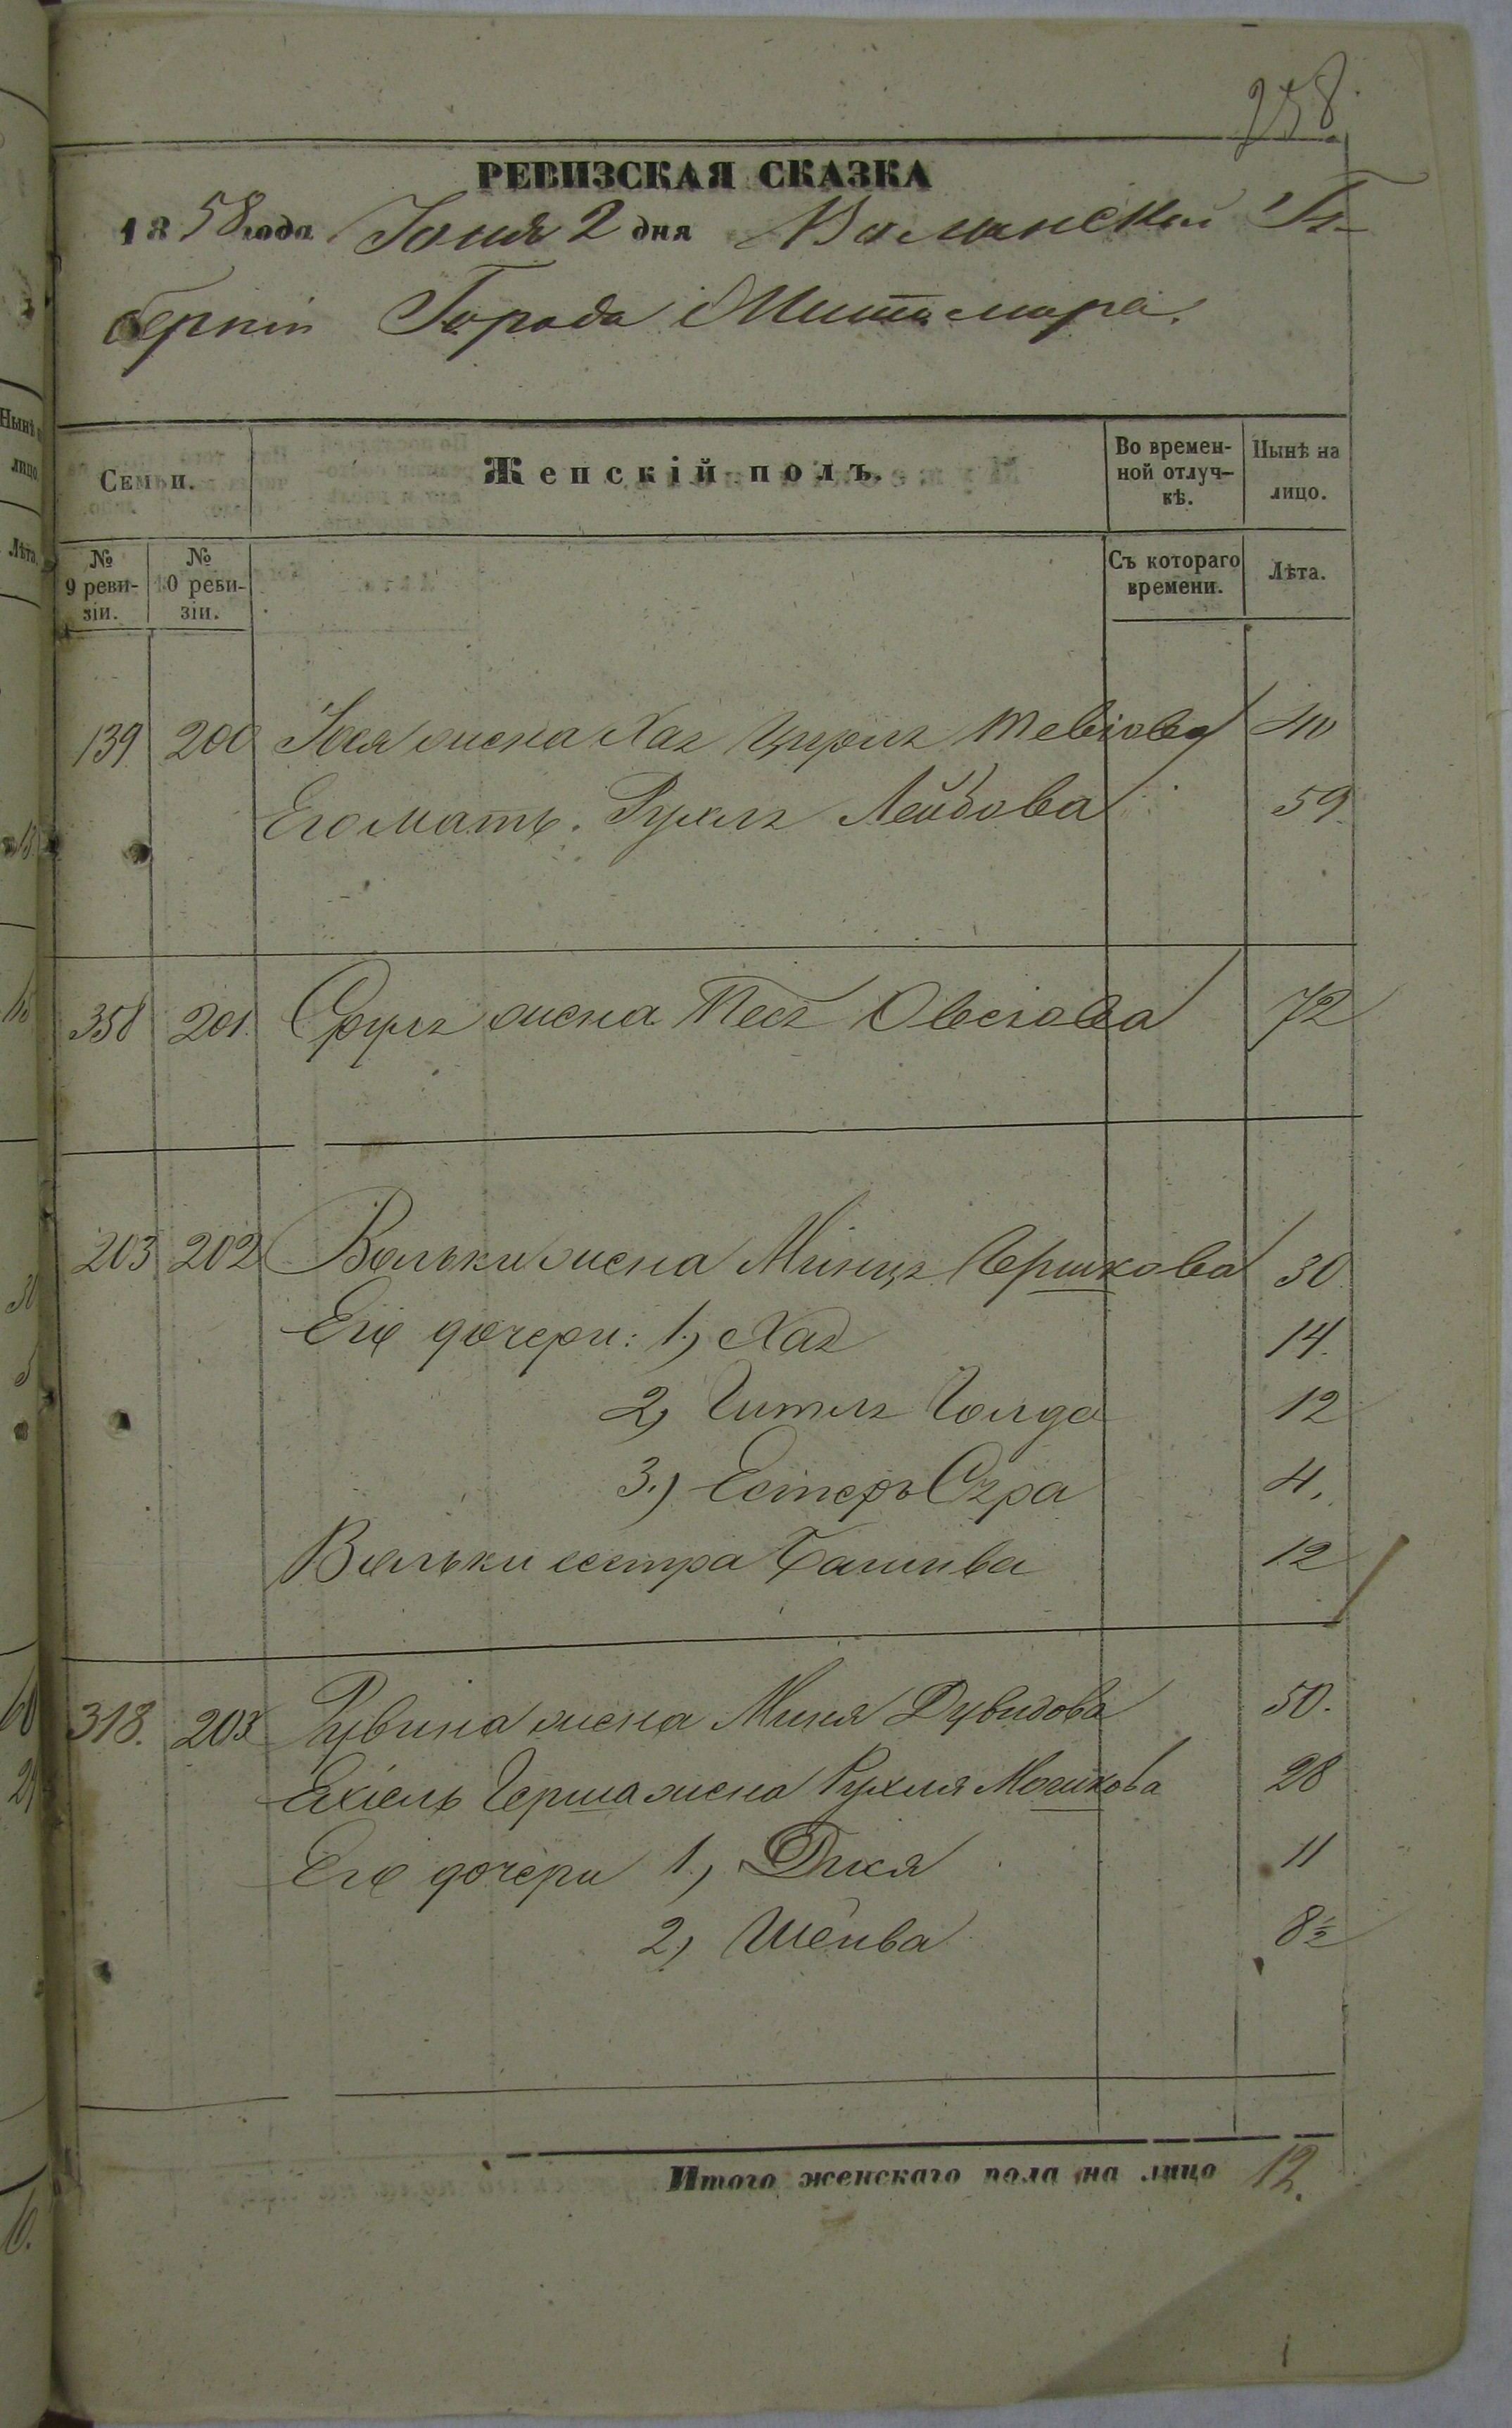 258.
РЕВИЗСКАЯ СКАЗКА
1858 года Іюня 2 дня Волынской Гу-
берніи Города Житомира.
Семьи.
Женскій полъ.
Во времен-
ной отлуч-
кѣ.
Нынѣ на
лицо.
№
9 реви-
зіи.
№
10 реви-
зіи.
Съ котораго
времени.
Лѣта.
139 200 жена Хая Цирля Тевіова 40
Его мать Рухля Лейбова 59
358 201. Сруля жена Песя Овсіова 72
203 202 Вольки жена Минця Гершкова 30
Его дочери: 1, Хая 14.
2, Гитля Голда 12
3.) Естеръ Сура 4.
Вольки сестра Башива 12
318. 203 Рувина жена Миня Дувидова 50.
Ехіель Герша жена Рухля Мошкова 28
Его дочери 1, 11
2, Шейва 8½
Итого женскаго пола на лицо 12.